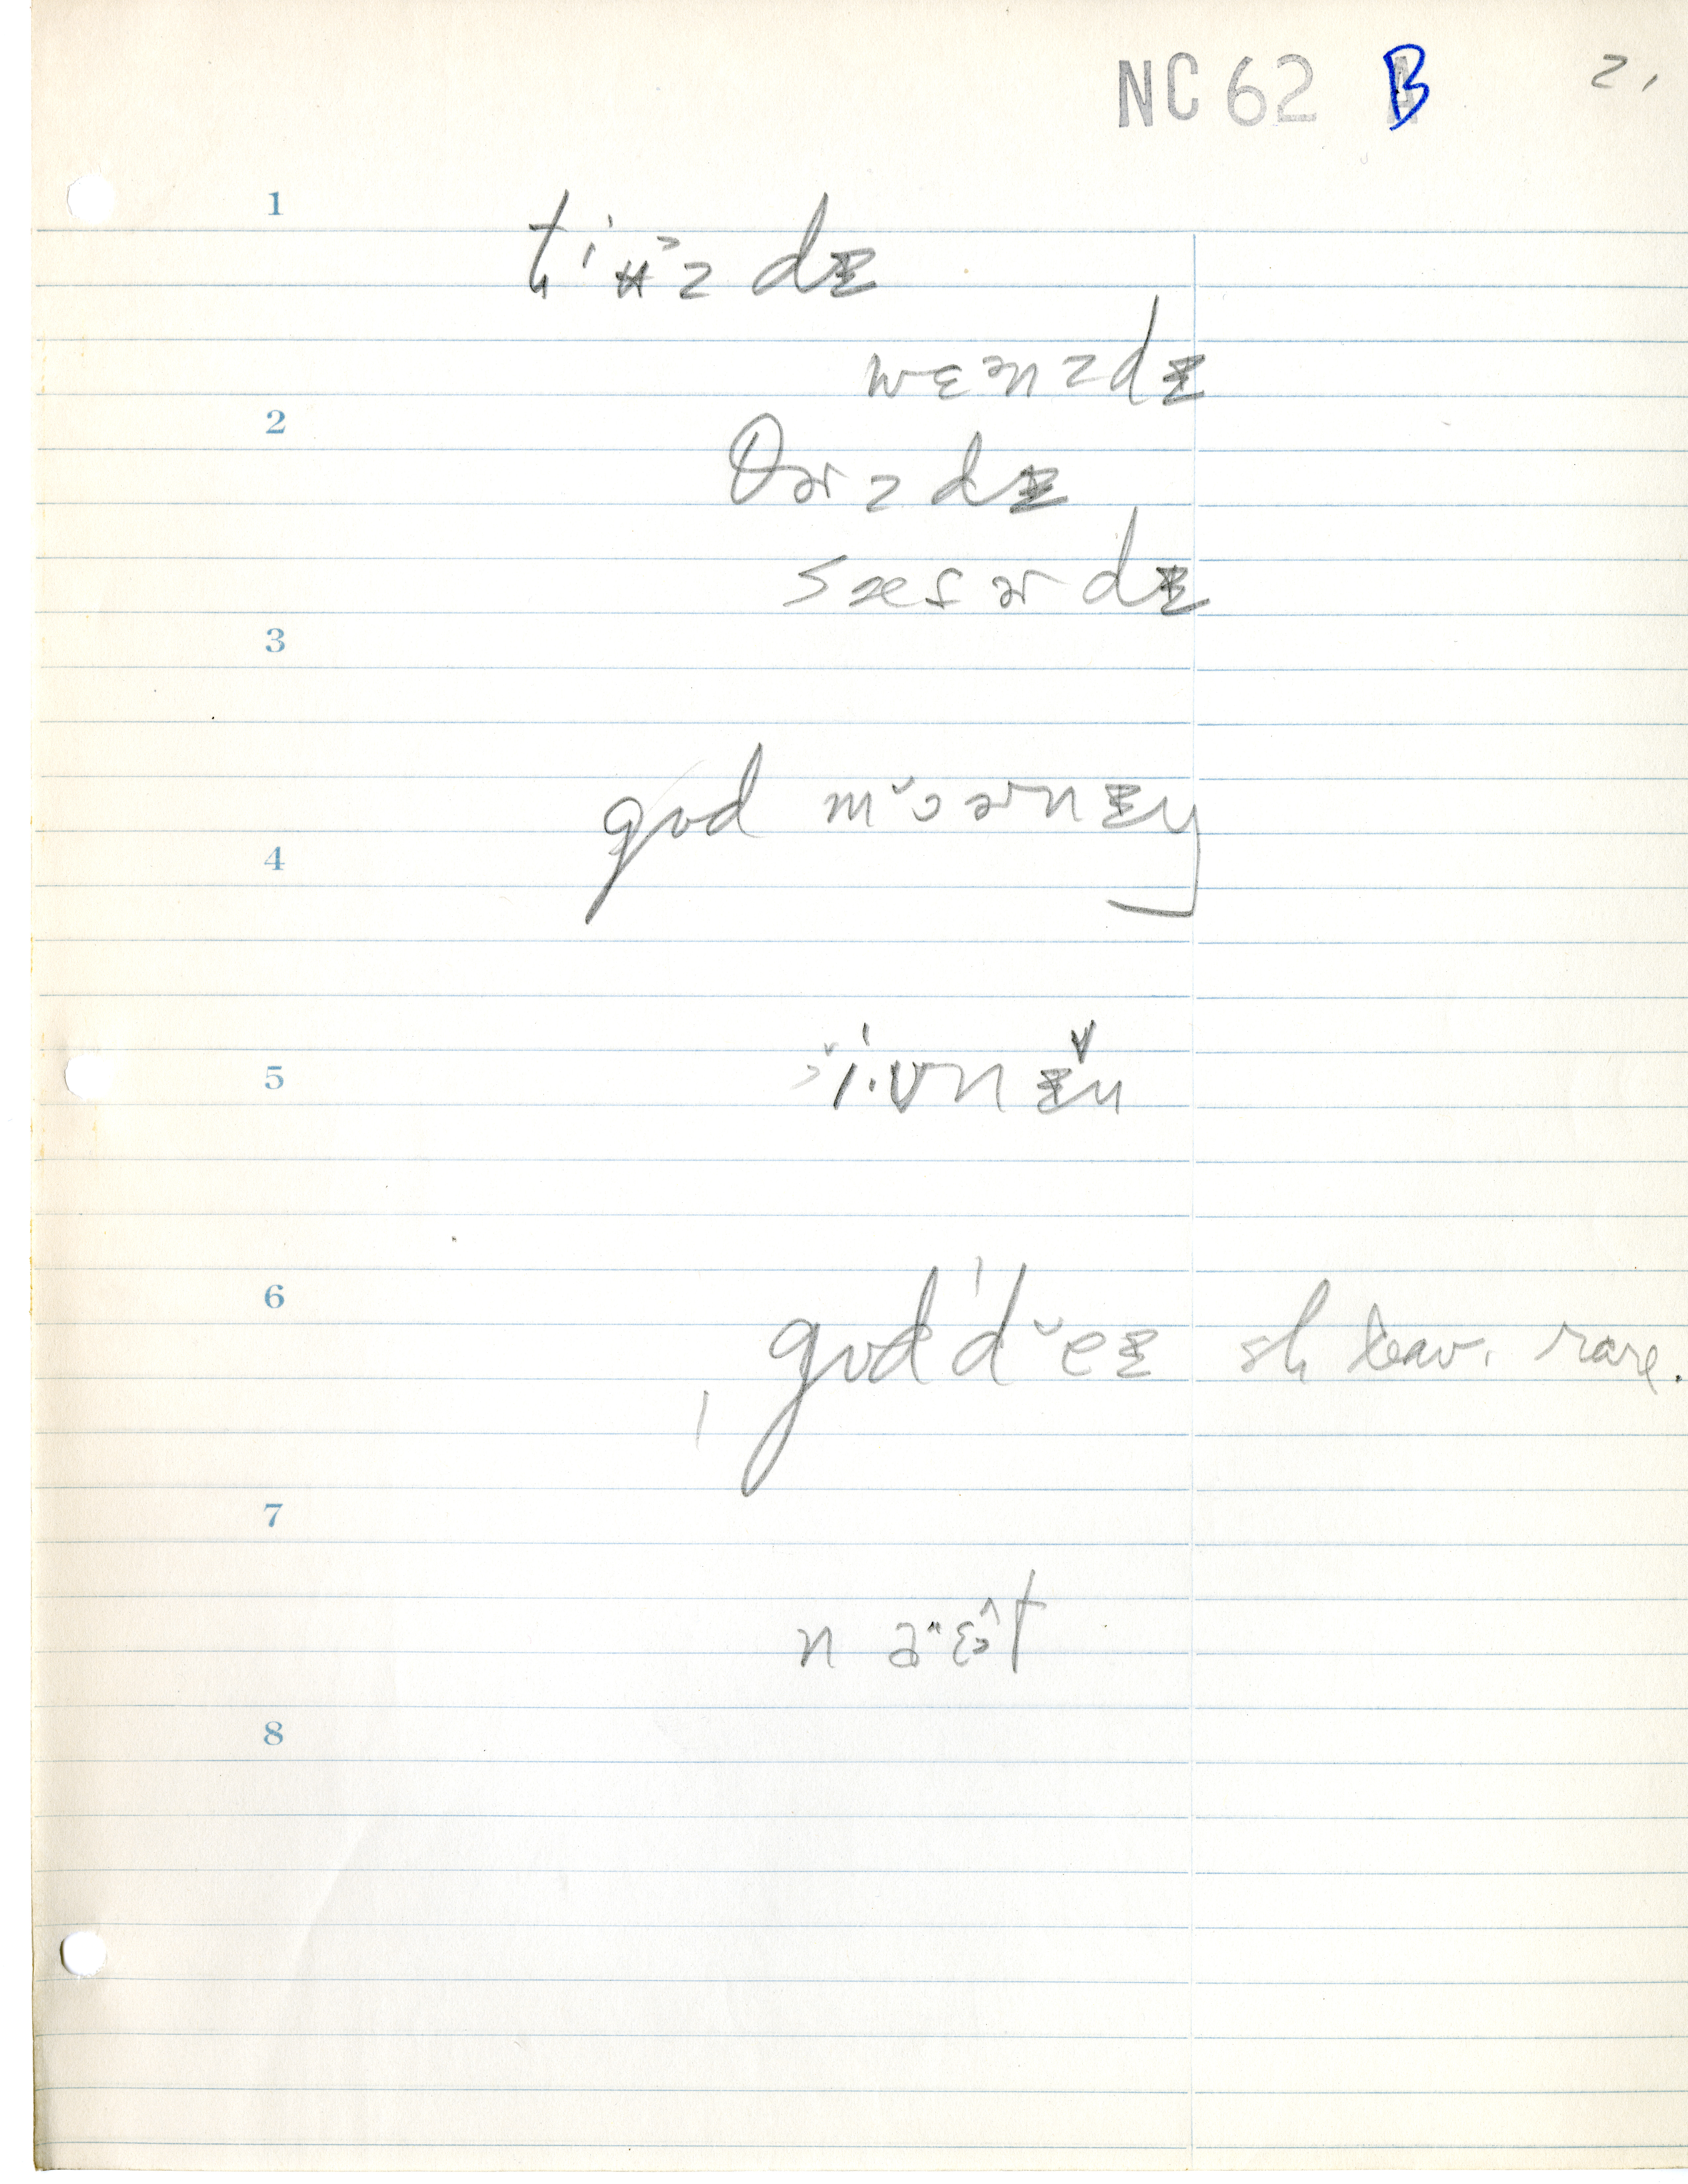 NC 62 B 2.
1
tʲʉᵊz dɪ
wɛənzdɪ
2
θɚzdɪ
sæsɚdɪ
3
gʊd mɔɚnɪŋ
4
5
i·vnɪn
6
gʊd deɪ sh leav. rare.
7
na·ɛt
8